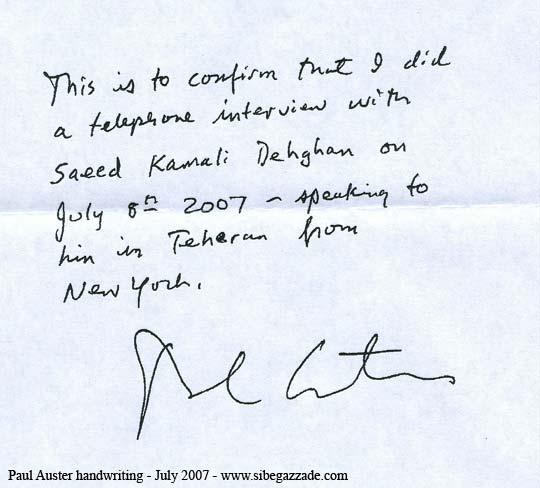 This is to confirm that I did
a telephone interview with
Saeed Kamali Dehghan on
July 8th 2007 – speaking to
him in Teheran from
New York.
Paul Auster
Paul Auster handwriting - July 2007 - www.sibegazzade.com